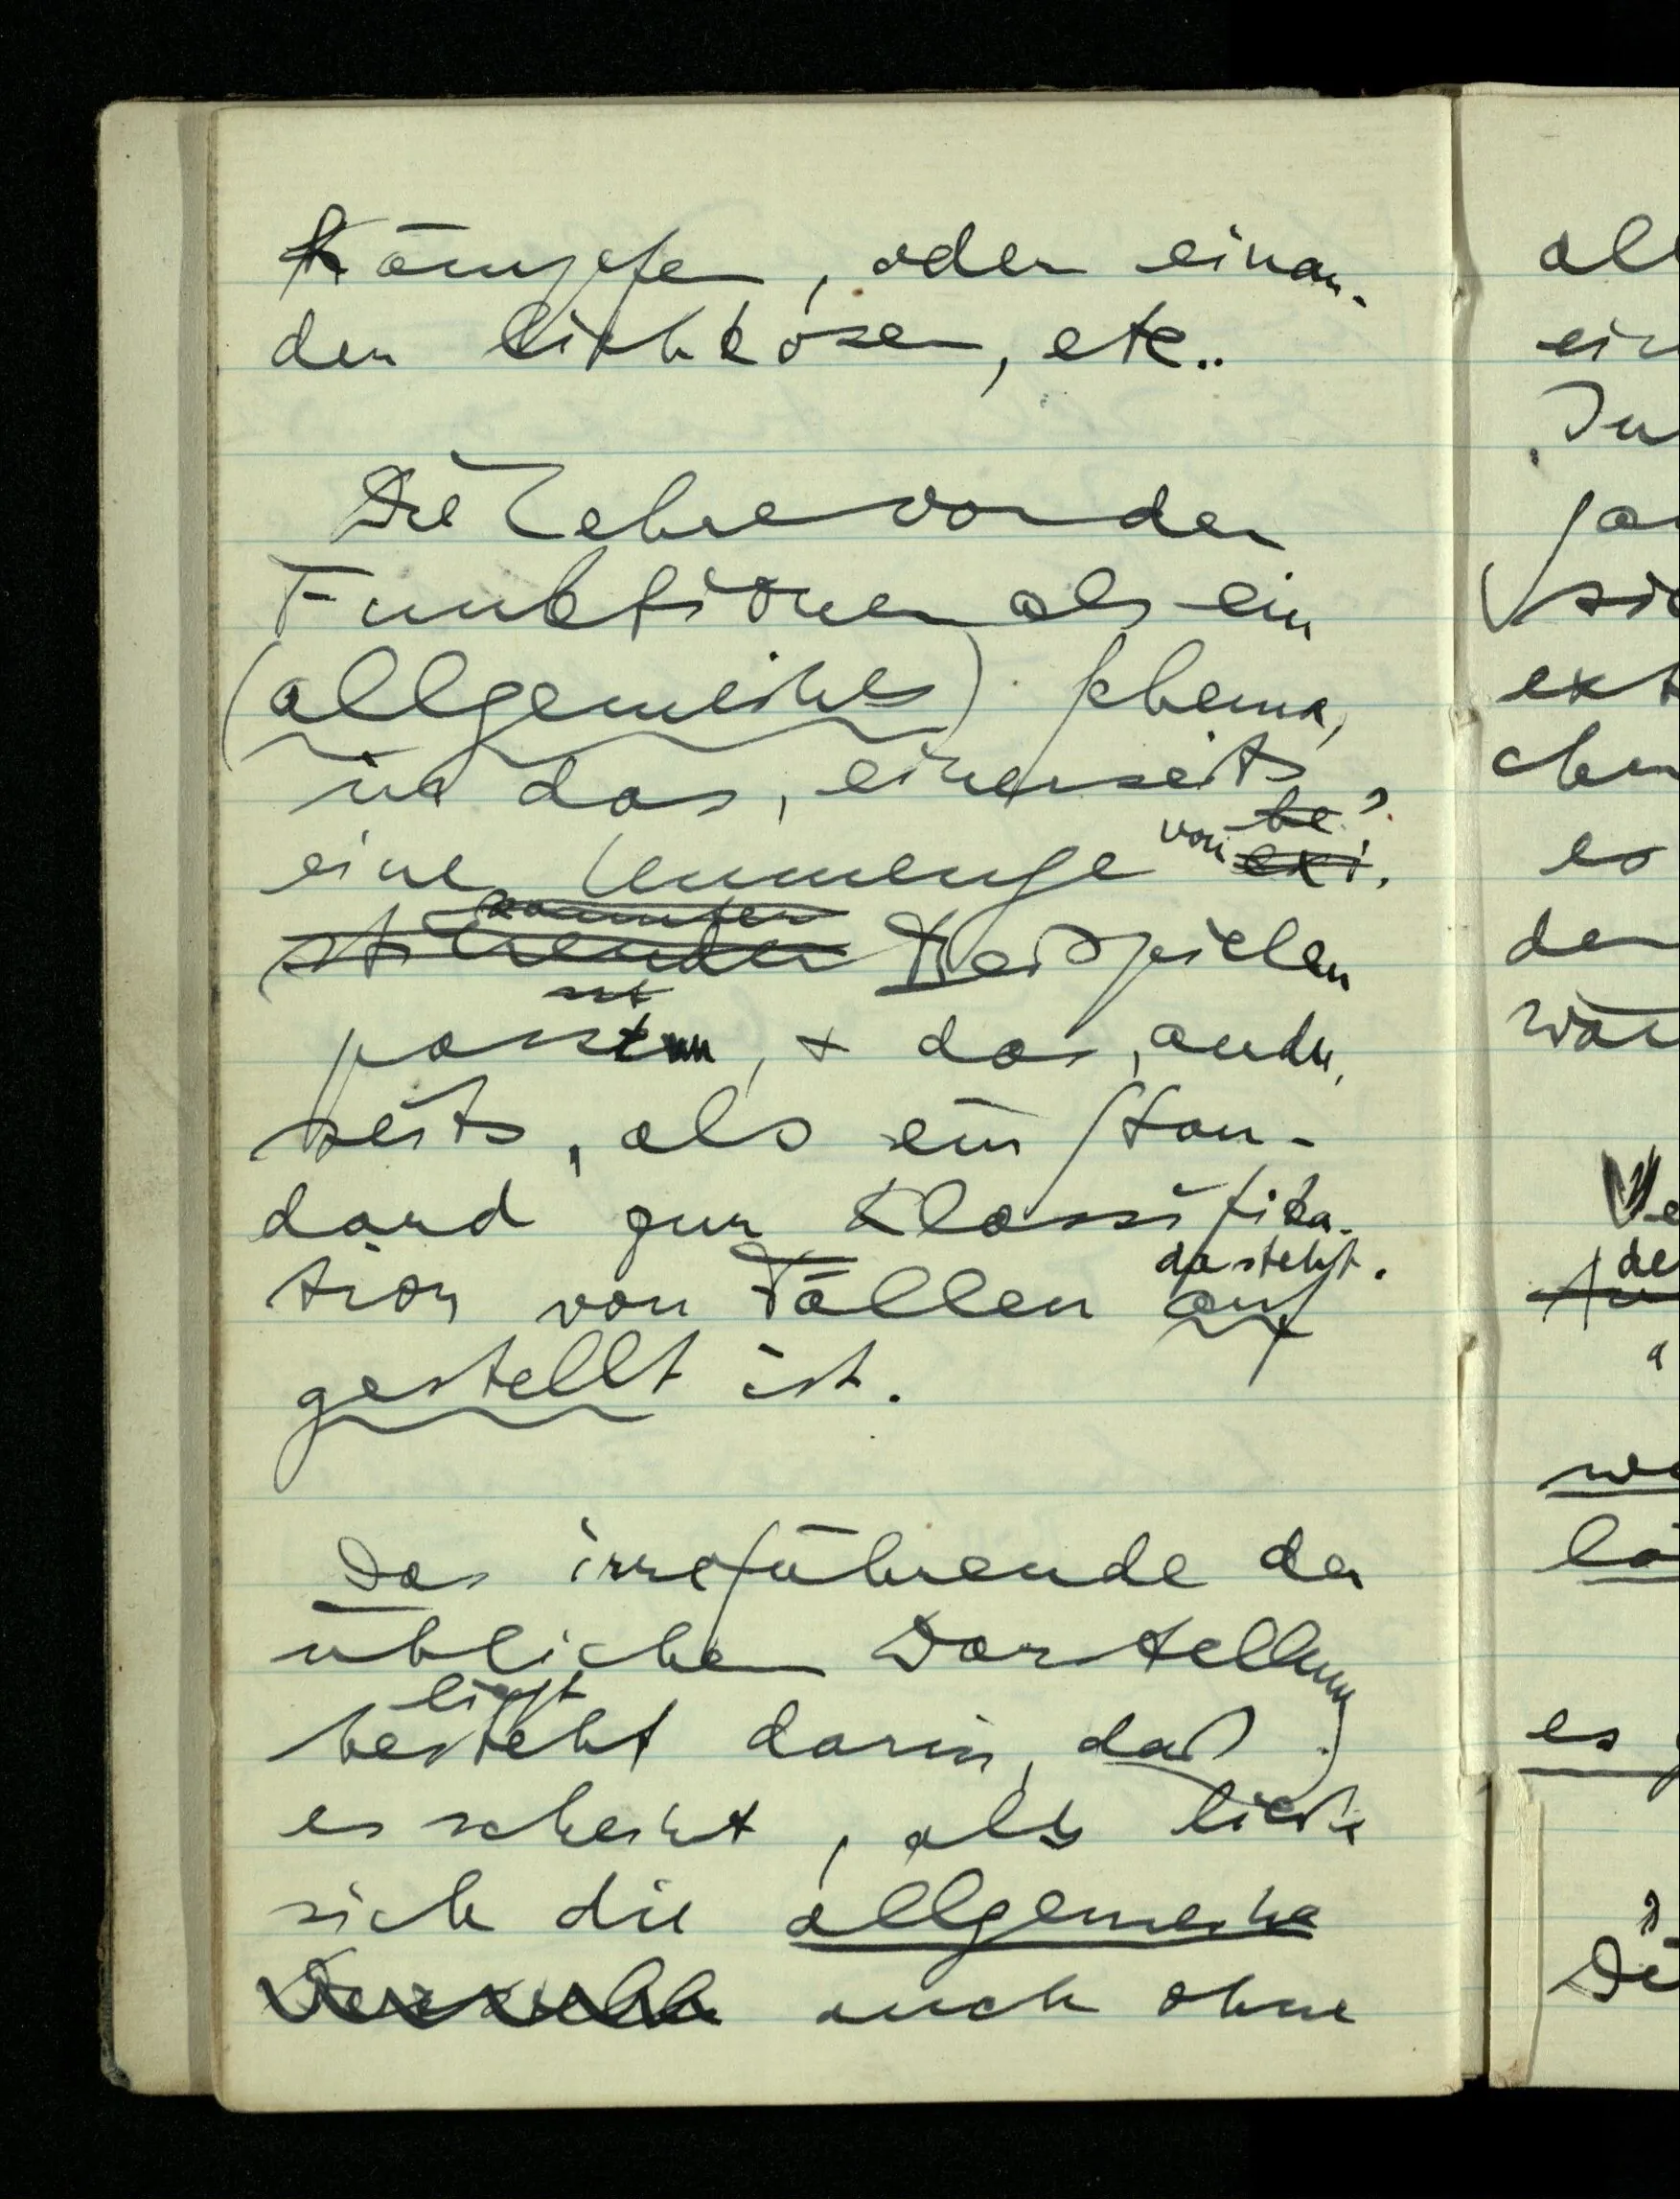 kämpfen, oder einan-
der liebkosen, etc..
Die Lehre von den
Funktionen als ein
(allgemeines) Schema,
in das, einerseits,
eine Unmenge von be exi-
kannter
stierender Beispielen
ist
passen, + das, ander-
seits, als ein Stan-
dard zur Klassifika-
dasteht.
tion von Fällen auf
gestellt ist.
Das irreführende der
üblichen Darstellung
liegt
besteht darin, daß
es scheint, als ließe
sich die allgemeine
auch ohne
al
ein
In
sic
ext
es
den
Ve
de
es
Di